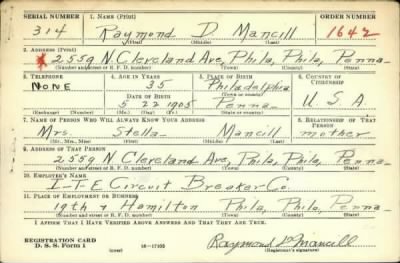 SERIAL NUMBER 1. NAME (Print) ORDER NUMBER
314 Raymond D Mancill 1642
(First) (Middle) (Last)
2. ADDRESS (Print)
2559 N. Cleveland Ave, Phila, Phila, Penna.
(Number and street or R. F. D. number) (Town) (County) (State)
3. TELEPHONE 4. AGE IN YEARS 5. PLACE OF BIRTH 6. COUNTRY OF CITIZENSHIP
None 35 Philadelphia
DATE OF BIRTH (Town or county)
5 22 1905 Penna. U. S. A
(Exchange) (Number) (Mo.) (Day) (Yr.) (State or country)
7. NAME OF PERSON WHO WILL ALWAYS KNOW YOUR ADDRESS 8. RELATIONSHIP OF THAT PERSON
Mrs. Stella Mancill mother
(Mr., Mrs., Miss) (First) (Middle) (Last)
9. ADDRESS OF THAT PERSON
2559 N Cleveland Ave, Phila, Phila, Penna.
(Number and street or R. F. D. number) (Town) (County) (State)
10. EMPLOYER'S NAME
I-T-E Circuit Breaker Co.
11. PLACE OF EMPLOYMENT OR BUSINESS
19th + Hamilton Phila, Phila, Penna.
(Number and street or R. F. D. number) (Town) (County) (State)
I AFFIRM THAT I HAVE VERIFIED ABOVE ANSWERS AND THAT THEY ARE TRUE.
REGISTRATION CARD
D. S. S. Form 1 (over) 16—17105 Raymond D Mancill
(Registrant's signature)